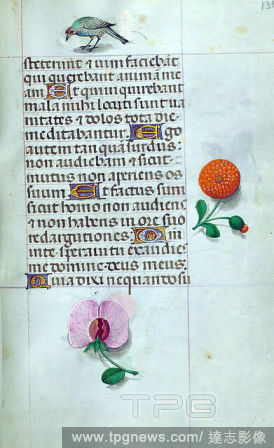 steterunt et vim faciebāt
qui querebant animam me
am Et qui inquirebant
mala michi locuti sunt va
nitates et dolos tota die
meditabantur Ego
autem tanquam surdus
non audiebam et sicut
mutus non aperiens os
suum Et factus sum
sicut homo non audiens
et non habens in ore suo
redargutiones Qm in
te speravi tu exaudies
me domine deus meus
Quia dixi nequando su
TPG
www.tpgnews.com/ 達志影像